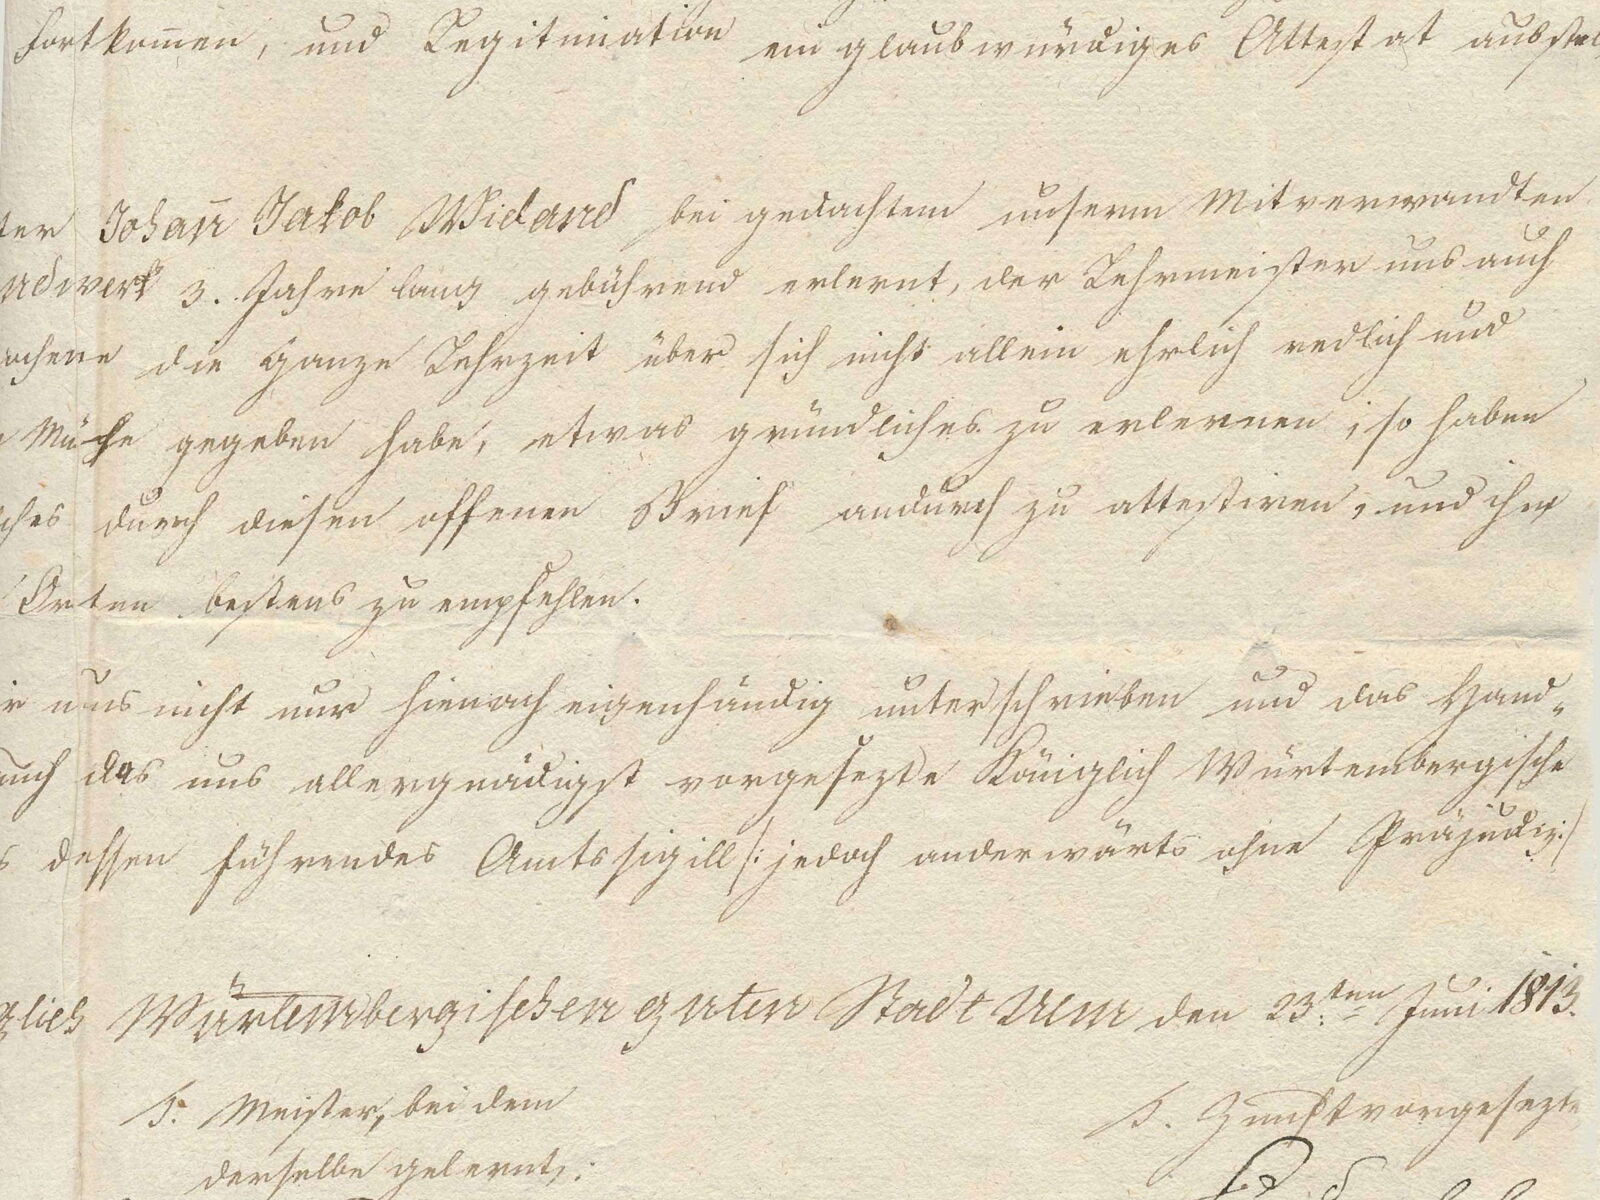 Fortkom̅en, und Legitimation ein glaubwürdiges Attestat ausstel
ter Johan̅ Jakob Wieland bei gedachtem unserm Mitverwandten
ndwerk 3. Jahre lang gebührend erlernt, der Lehrmeister uns auch
ochene die ganze Lehrzeit über sich nicht allein ehrlich redlich und
Mühe gegeben habe, etwas gründliches zu erlernen, so haben
ches durch diesen offenen Brief andurch zu attestiren, und ihn
Orten bestens zu empfehlen.
ir uns nicht nur hienach eigenhändig unterschrieben und das Hand„
auch das uns allergnädigst vorgesezte Königlich Würtembergische
s dessen führendes Amtssigill /: jedoch anderwärts ohne Präjudiz :/
glich Würtembergischen guten Stadt Ulm den 23.ten Juni 1813.
T. Meister, bei dem
derselbe gelernt:
T. Zunftvorgesezte